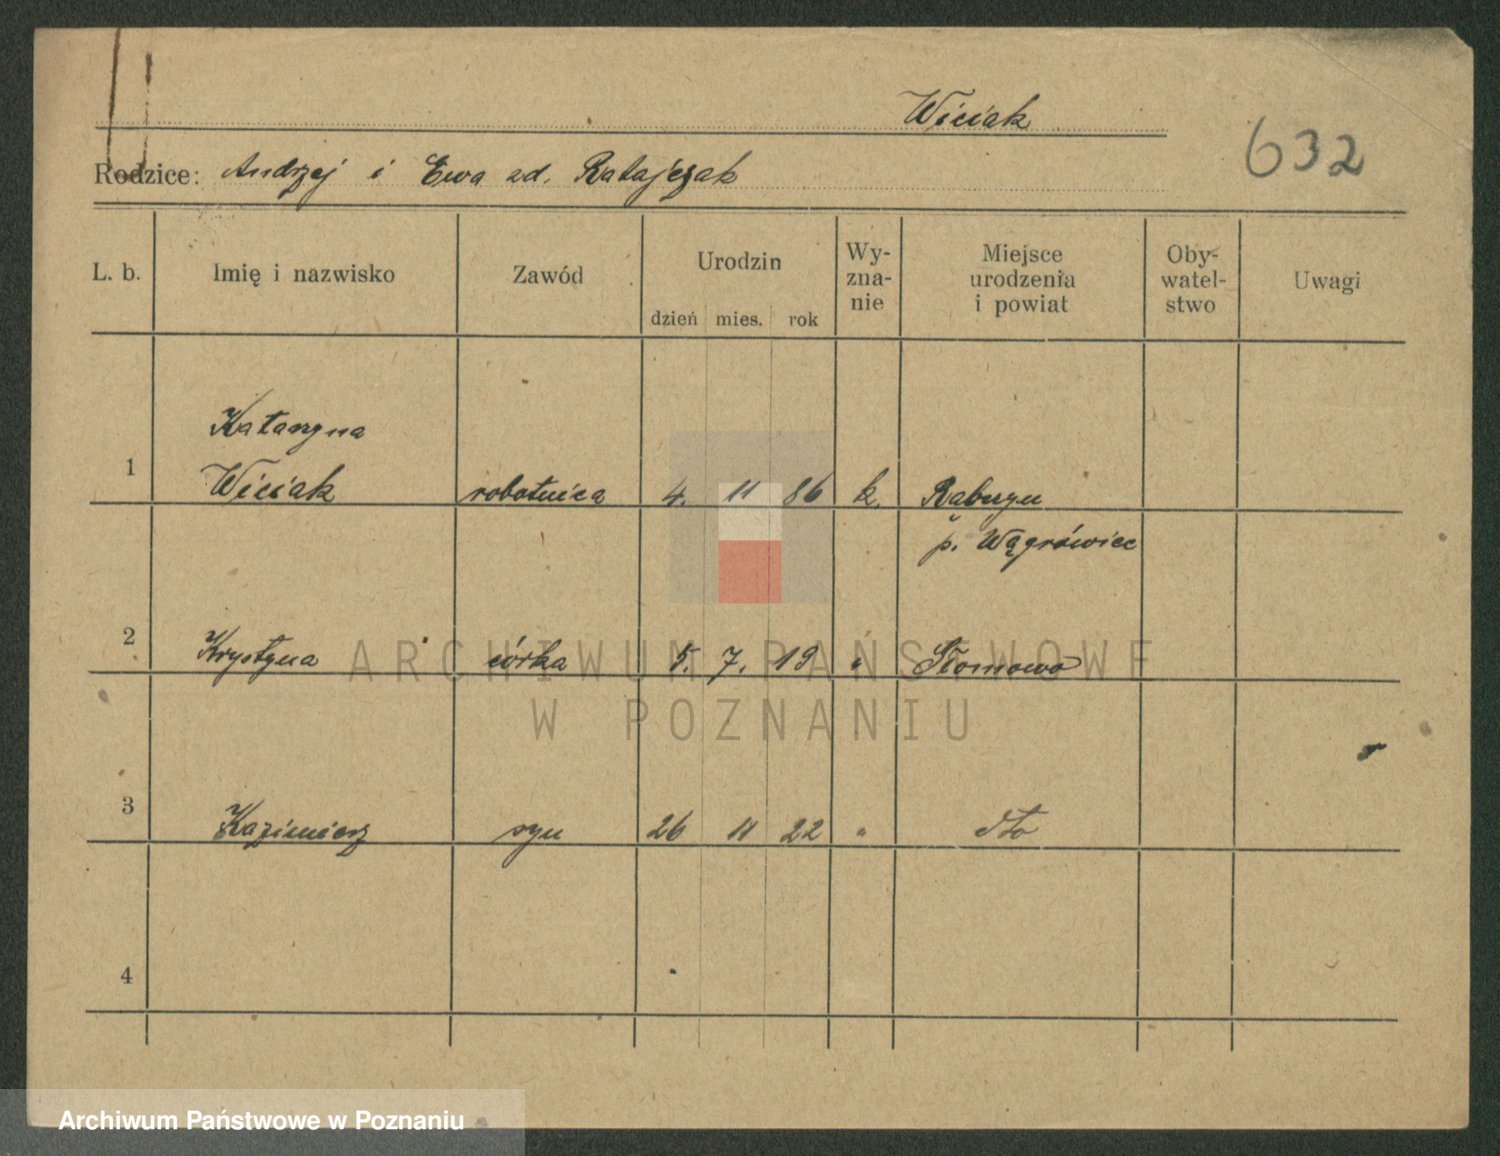 Wiciak
632
Rodzice: Andrzej i Ewa zd. Ratajczak
L. b. Imię i nazwisko Zawód Urodzin dzień mies. rok Wy-zna-nie Miejsce urodzenia i powiat Oby-watel-stwo Uwagi
Katarzyna
1 Wiciak robotnica 4. 11 86 k.
p. Wągrówiec
2 Krystyna córka 5. 7. 19 " Słomowo
3 Kazimierz syn 26 11 22 " dto
4
ARCHIWUM PAŃSTWOWE
W POZNANIU
Archiwum Państwowe w Poznaniu